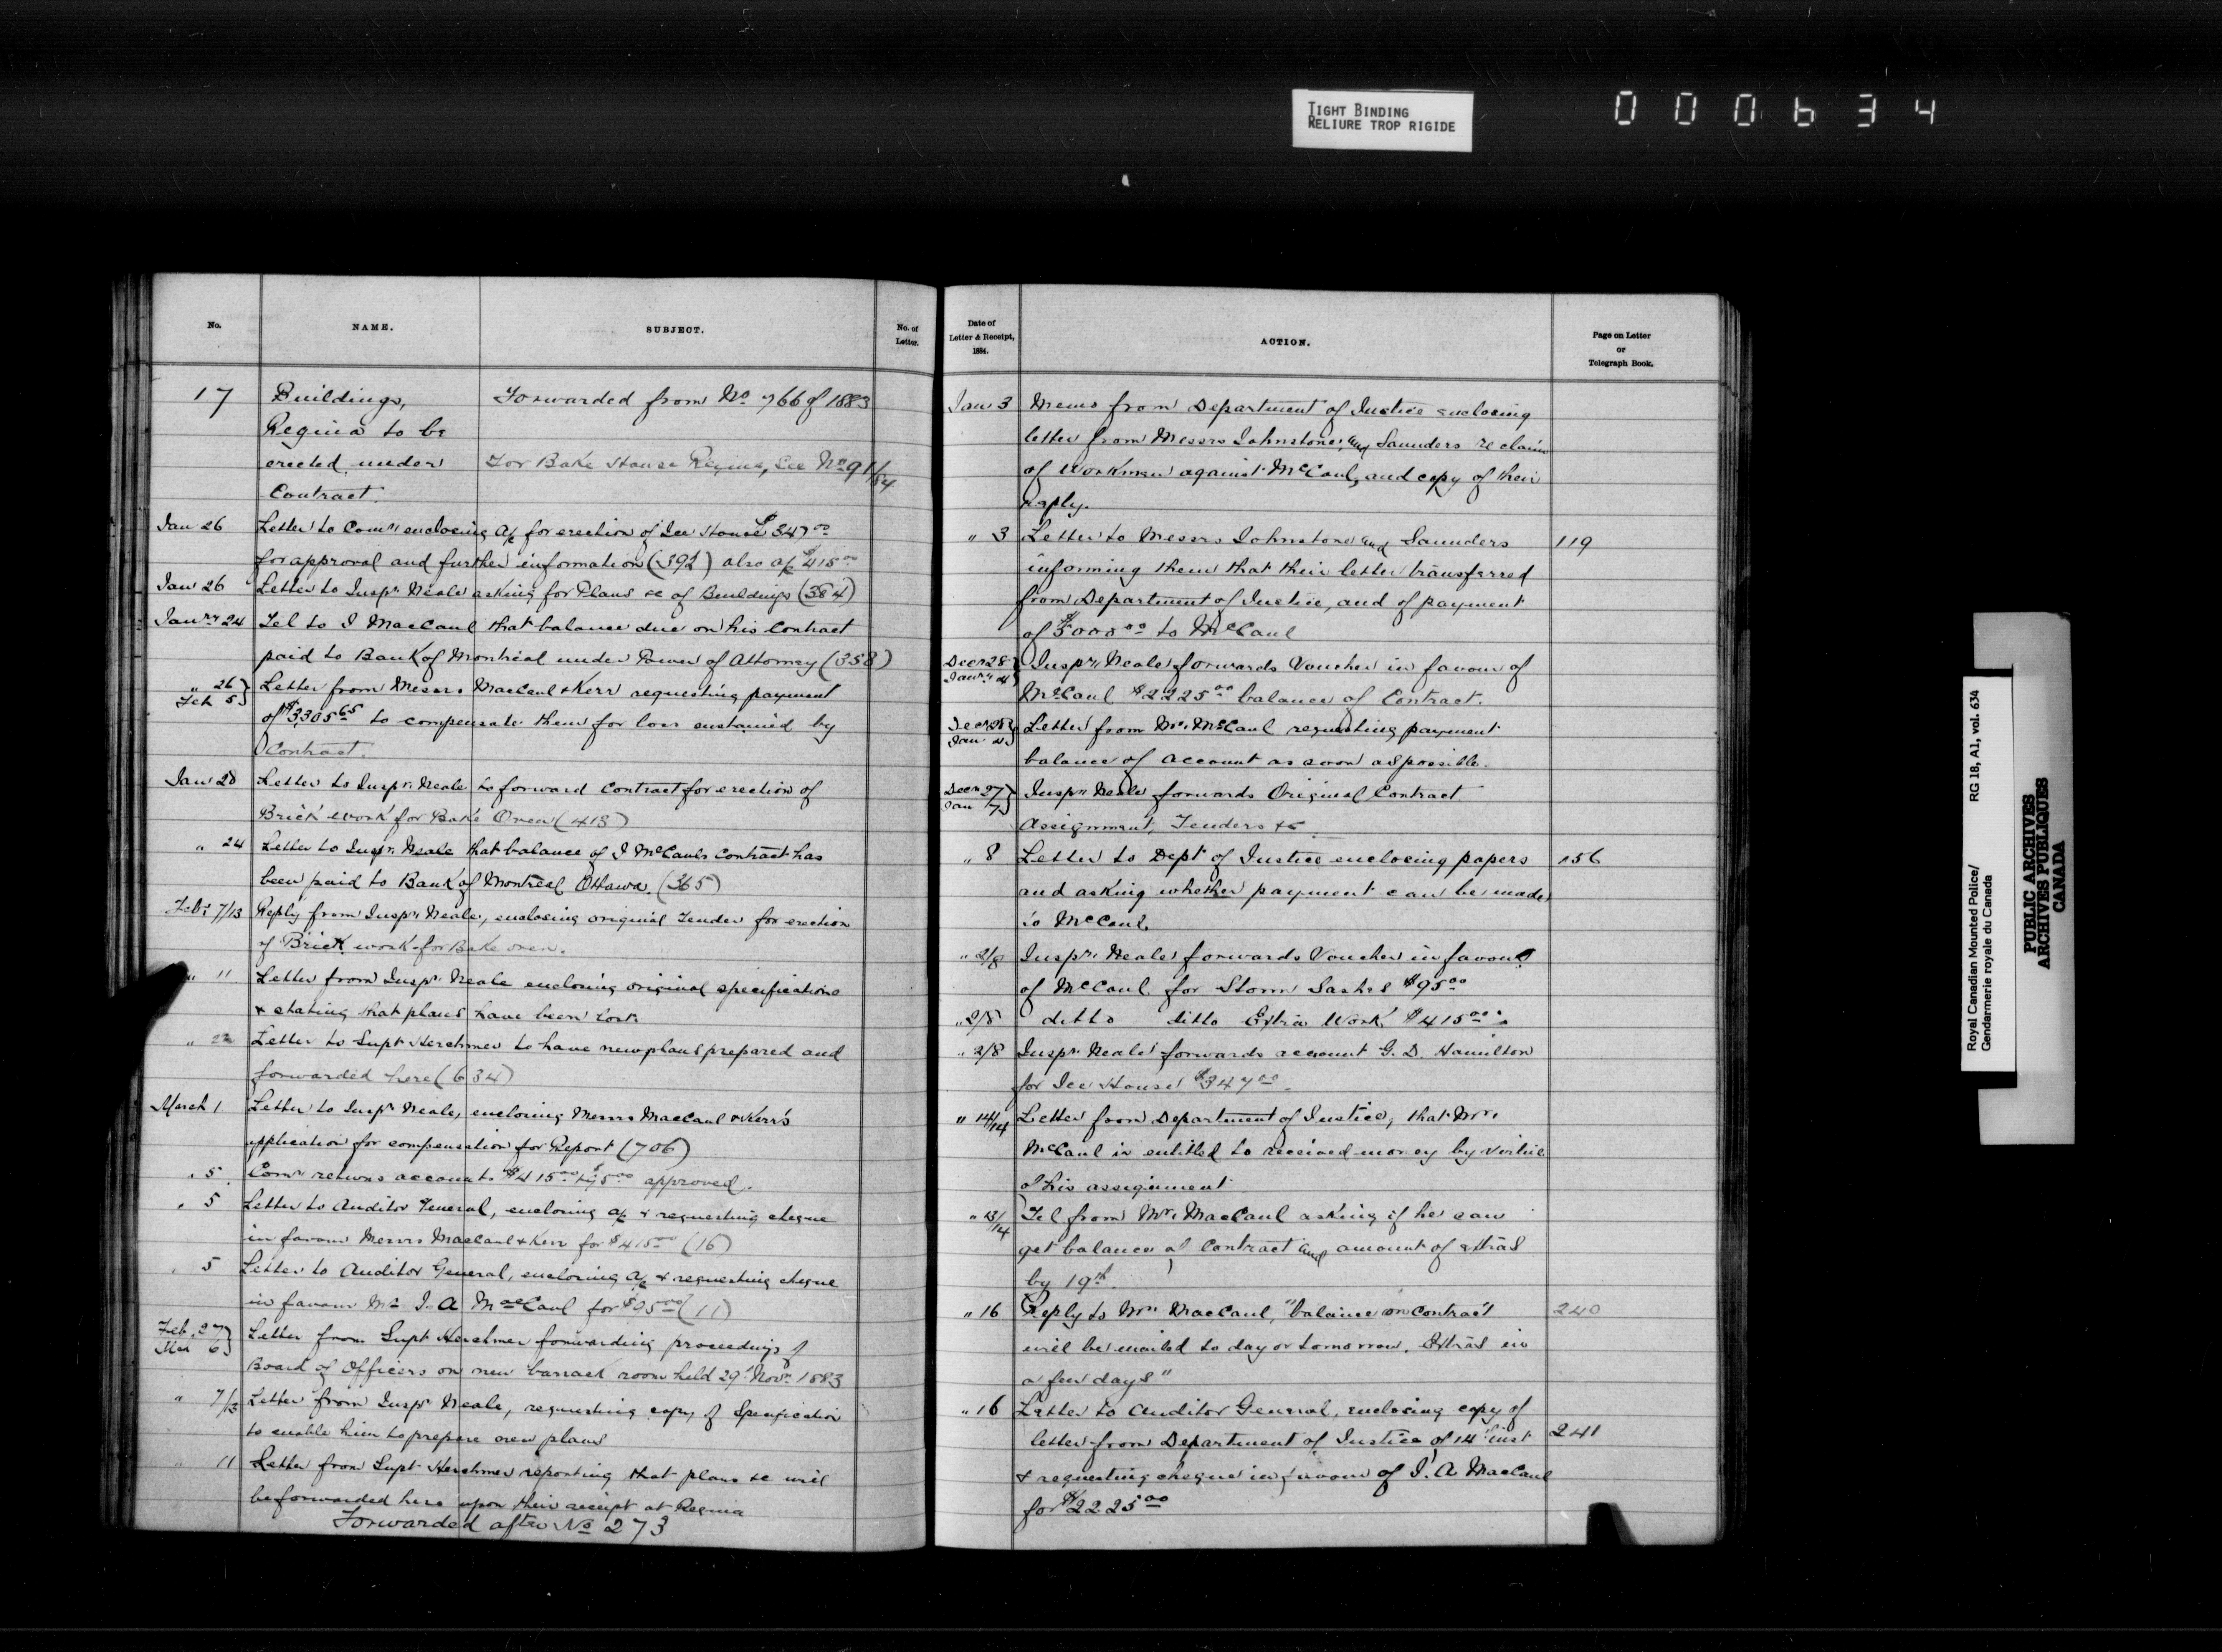 TIGHT BINDING
RELIURE TROP RIGIDE
000634
No.
NAME.
SUBJECT.
No. of
Letter.
17
Buildings,
Forwarded from No 766 of 1883
Regina to be
erected under
For Bake House Regina, See No 91/84
Contract.
Jan 26 Letter to Comr enclosing a/c for erection of Ice House $347 00
for approval and further information (392) also a/c $415 00
Jan 26 Letter to Inspr Neale asking for Plans &c of Buildings (384)
Janry 24 Tel to J MacCaul that balance due on his Contract
paid to Bank of Montreal under Power of Attorney (358)
" 26 } Letter from Messrs MacCaul & Kerr requesting payment
Feb 5 }
of $3305 65 to compensate them for loss sustained by
Contract.
Jan 28 Letter to Inspr Neale to forward Contract for erection of
Brick work for Bake Oven (413)
" 24 Letter to Inspr Neale that balance of J McCauls Contract has
been paid to Bank of Montreal Ottawa. (365)
Feby 7/13 Reply from Inspr Neale, enclosing original Tender for erection
of Brick work for Bake oven.
" 11 Letter from Inspr Neale enclosing original specifications
& stating that plans have been lost.
" 22 Letter to Supt Herchmer to have new plans prepared and
forwarded here (634)
March 1 Letter to Inspr Neale, enclosing Messrs MacCaul & Kerr's
application for compensation for Report (706)
" 5. Comr returns accounts $415 00 & $95 00 approved.
" 5 Letter to Auditor General, enclosing a/c & requesting cheque
in favour Messrs MacCaul & Kerr for $415 00 (16)
" 5 Letter to Auditor General, enclosing a/c & requesting cheque
in favour Mr J. A MacCaul for $95 00 (11)
Feb. 27 } Letter from Supt Herchmer forwarding proceedings of
Mar 6 }
Board of Officers on new barrack room held 29 Novr 1883
" 7/13 Letter from Inspr Neale, requesting copy of Specification
to enable him to prepare oven plans
" 11 Letter from Supt Herchmer reporting that plans &c will
be forwarded here upon their receipt at Regina
Forwarded after No 273
Date of
Letter & Receipt,
1884.
ACTION.
Page on Letter
or
Telegraph Book.
Jan 3 Memo from Department of Justice enclosing
letter from Messrs Johnstone and Saunders re claim
of Workmen against McCaul, and copy of their
reply.
" 3 Letter to Messrs Johnstone and Saunders 119
informing them that their letter transferred
from Department of Justice, and of payment
of $5000 00 to McCaul
Decr 28 } Inspr Neale forwards Voucher in favour of
Janry 4 }
McCaul $2225 00 balance of Contract.
Decr 28 } Letter from Mr McCaul requesting payment
Jan 4 }
balance of account as soon as possible.
Decr 27 } Inspr Neale forwards Original Contract
Jan 7 }
Assignment, Tenders &c
" 8 Letter to Dept of Justice enclosing papers 156
and asking whether payment can be made
to McCaul.
" 2/8 Inspr Neale forwards Voucher in favour
of McCaul for Storm Sashes $95 00
" 2/8 ditto ditto Extra Work $415 00
" 2/8 Inspr Neale forwards account G. D. Hamilton
for Ice House $347 00
" 14/14 Letter from Department of Justice, that Mr
McCaul is entitled to received money by virtue
of his assignment
" 13/14 Tel from Mr MacCaul asking if he can
get balance of Contract and amount of extras
by 19th.
" 16 Reply to Mr MacCaul, "balance on Contract 240
will be mailed to day or tomorrow. Extras in
a few days"
" 16 Letter to Auditor General, enclosing copy of
letter from Department of Justice of 14 Inst 241
& requesting cheque in favour of J. A MacCaul
for $2225 00
Royal Canadian Mounted Police/
Gendarmerie royale du Canada
RG 18, A1, vol. 634
PUBLIC ARCHIVES
ARCHIVES PUBLIQUES
CANADA